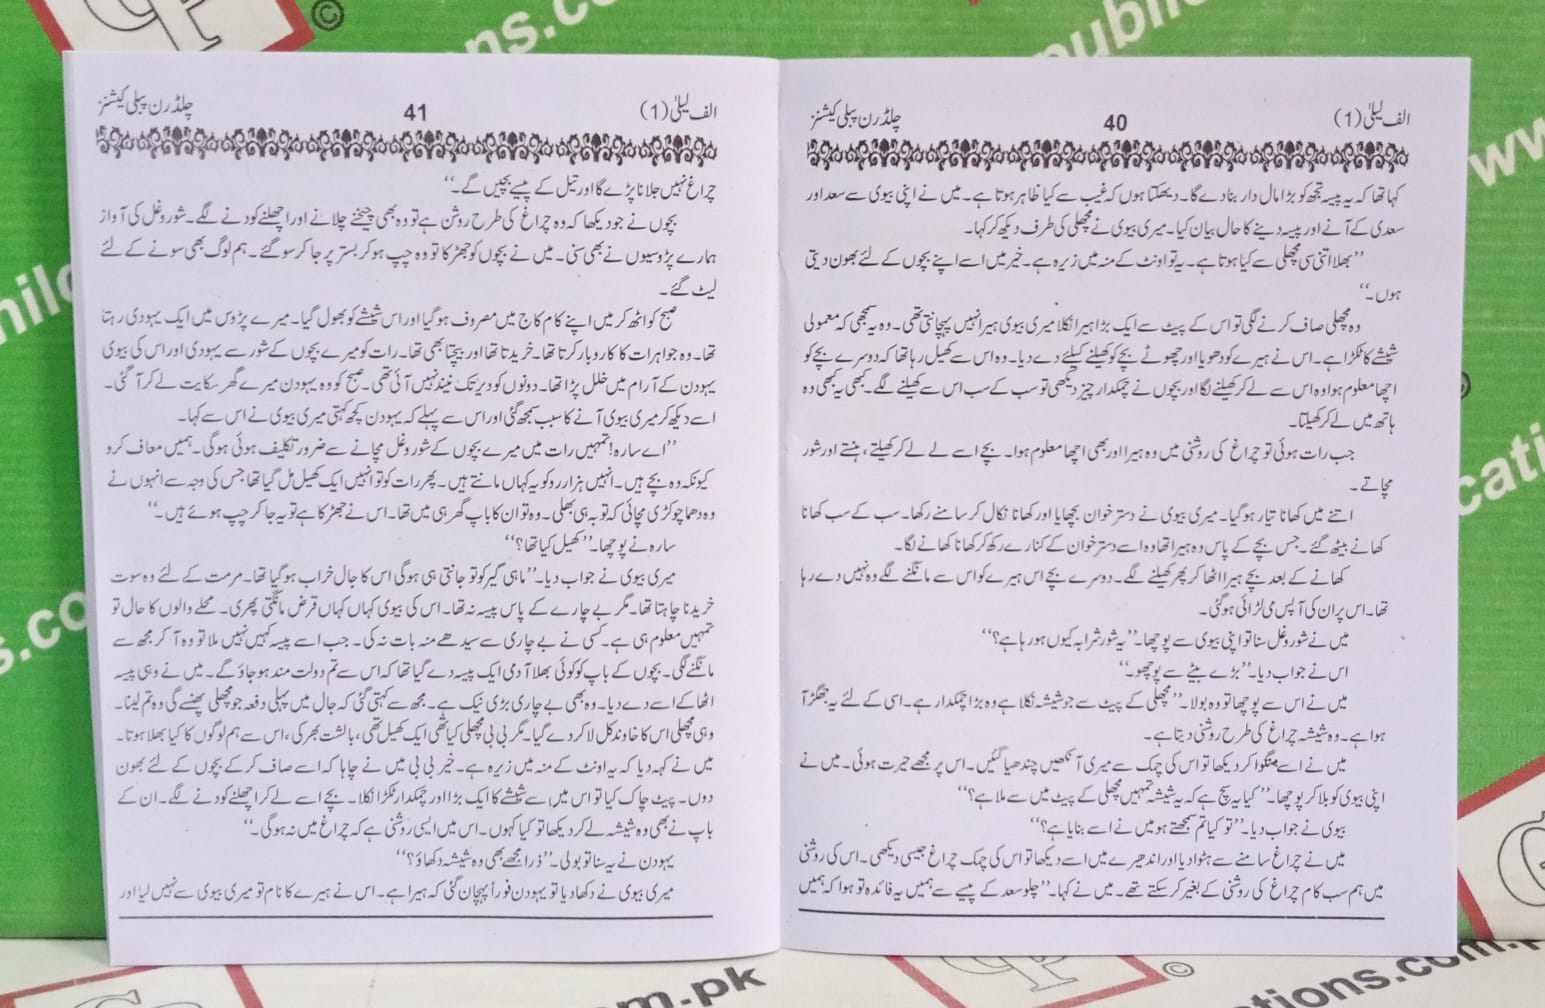 الف لیلیٰ (1)
40
چلڈرن پبلی کیشنز
کہا تھا کہ یہ پیسہ تجھ کو بڑا مال دار بنا دے گا۔ دیکھتا ہوں کہ غیب سے کیا ظاہر ہوتا ہے۔ میں نے اپنی بیوی سے سعد اور
سعدی کے آنے اور پیسہ دینے کا حال بیان کیا۔ میری بیوی نے مچھلی کی طرف دیکھ کر کہا۔
’’بھلا اتنی سی مچھلی سے کیا ہوتا ہے۔ یہ تو اونٹ کے منہ میں زیرہ ہے۔ خیر میں اسے اپنے بچوں کے لئے بھون دیتی
ہوں۔‘‘
وہ مچھلی صاف کرنے لگی تو اس کے پیٹ سے ایک بڑا ہیرا نکلا میری بیوی ہیرا نہیں پہچانتی تھی۔ وہ یہ سمجھی کہ معمولی
شیشے کا ٹکڑا ہے۔ اس نے ہیرے کو دھویا اور چھوٹے بچے کو کھیلنے کیلئے دے دیا۔ وہ اس سے کھیل رہا تھا کہ دوسرے بچے کو
اچھا معلوم ہوا وہ اس سے لے کر کھیلنے لگا اور بچوں نے چمکدار چیز دیکھی تو سب کے سب اس سے کھیلنے لگے۔ کبھی یہ کبھی وہ
ہاتھ میں لے کر کھیلتا۔
جب رات ہوئی تو چراغ کی روشنی میں وہ ہیرا اور بھی اچھا معلوم ہوا۔ بچے اسے لے لے کر کھیلتے، ہنستے اور شور
مچاتے۔
اتنے میں کھانا تیار ہو گیا۔ میری بیوی نے دسترخوان بچھایا اور کھانا نکال کر سامنے رکھا۔ سب کے سب کھانا
کھانے بیٹھ گئے۔ جس بچے کے پاس وہ ہیرا تھا وہ اسے دسترخوان کے کنارے رکھ کر کھانا کھانے لگا۔
کھانے کے بعد بچے ہیرا اٹھا کر پھر کھیلنے لگے۔ دوسرے بچے اس ہیرے کو اس سے مانگنے لگے وہ نہیں دے رہا
تھا۔ اس پر ان کی آپس می لڑائی ہو گئی۔
میں نے شور و غل سنا تو اپنی بیوی سے پوچھا۔ ’’یہ شور شرابہ کیوں ہو رہا ہے؟‘‘
اس نے جواب دیا۔ ’’بڑے بیٹے سے پوچھو۔‘‘
میں نے اس سے پوچھا تو وہ بولا۔ ’’مچھلی کے پیٹ سے جو شیشہ نکلا ہے وہ بڑا چمکدار ہے۔ اسی کے لئے یہ جھگڑا
ہوا ہے۔ وہ شیشہ چراغ کی طرح روشنی دیتا ہے۔
میں نے اسے منگوا کر دیکھا تو اس کی چمک سے میری آنکھیں چندھیا گئیں۔ اس پر مجھے حیرت ہوئی۔ میں نے
اپنی بیوی کو بلا کر پوچھا۔ ’’کیا یہ سچ ہے کہ یہ شیشہ تمہیں مچھلی کے پیٹ میں سے ملا ہے؟‘‘
بیوی نے جواب دیا۔ ’’تو کیا تم سمجھتے ہو میں نے اسے بنایا ہے؟‘‘
میں نے چراغ سامنے سے ہٹوا دیا اور اندھیرے میں اسے دیکھا تو اس کی چمک چراغ جیسی دیکھی۔ اس کی روشنی
میں ہم سب کام چراغ کی روشنی کے بغیر کر سکتے تھے۔ میں نے کہا۔ ’’چلو سعد کے پیسے سے ہمیں یہ فائدہ تو ہوا کہ ہمیں
الف لیلیٰ (1)
41
چلڈرن پبلی کیشنز
چراغ نہیں جلانا پڑے گا اور تیل کے پیسے بچیں گے۔‘‘
بچوں نے جو دیکھا کہ وہ چراغ کی طرح روشن ہے تو وہ بھی چیخنے چلانے اور اچھلنے کودنے لگے۔ شور و غل کی آواز
ہمارے پڑوسیوں نے بھی سنی۔ میں نے بچوں کو جھڑکا تو وہ چپ ہو کر بستر پر جا کر سو گئے۔ ہم لوگ بھی سونے کے لئے
لیٹ گئے۔
صبح کو اٹھ کر میں اپنے کام کاج میں مصروف ہو گیا اور اس شیشے کو بھول گیا۔ میرے پڑوس میں ایک یہودی رہتا
تھا۔ وہ جواہرات کا کاروبار کرتا تھا۔ خریدتا تھا اور بیچتا بھی تھا۔ رات کو میرے بچوں کے شور سے یہودی اور اس کی بیوی
یہودن کے آرام میں خلل پڑا تھا۔ دونوں کو دیر تک نیند نہیں آئی تھی۔ صبح کو وہ یہودن میرے گھر سکایت لے کر آ گئی۔
اسے دیکھ کر میری بیوی آنے کا سبب سمجھ گئی اور اس سے پہلے کہ یہودن کچھ کہتی میری بیوی نے اس سے کہا۔
’’اے سارہ! تمہیں رات میں میرے بچوں کے شور و غل مچانے سے ضرور تکلیف ہوئی ہو گی۔ ہمیں معاف کر دو
کیونکہ وہ بچے ہیں۔ انہیں ہزار روکو یہ کہاں مانتے ہیں۔ پھر رات کو تو انہیں ایک کھیل مل گیا تھا جس کی وجہ سے انہوں نے
وہ دھما چوکڑی مچائی کہ توبہ ہی بھلی۔ وہ تو ان کا باپ گھر ہی میں تھا۔ اس نے جھڑکا ہے تو یہ جا کر چپ ہوئے ہیں۔‘‘
سارہ نے پوچھا۔ ’’کھیل کیا تھا؟‘‘
میری بیوی نے جواب دیا۔ ’’ماہی گیر کو تو جانتی ہی ہو گی اس کا جال خراب ہو گیا تھا۔ مرمت کے لئے وہ سوت
خریدنا چاہتا تھا۔ مگر بے چارے کے پاس پیسہ نہ تھا۔ اس کی بیوی کہاں کہاں قرض مانگتی پھری۔ محلے والوں کا حال تو
تمہیں معلوم ہی ہے۔ کسی نے بے چاری سے سیدھے منہ بات نہ کی۔ جب اسے پیسہ کہیں نہیں ملا تو وہ آ کر مجھ سے
مانگنے لگی۔ بچوں کے باپ کو کوئی بھلا آدمی ایک پیسہ دے گیا تھا کہ اس سے تم دولت مند ہو جاؤ گے۔ میں نے وہی پیسہ
اٹھا کے اسے دے دیا۔ وہ بھی بے چاری بڑی نیک ہے۔ مجھ سے کہتی گئی کہ جال میں پہلی دفعہ جو مچھلی پھنسے گی وہ تم لینا۔
وہی مچھلی اس کا خاوند کل لا کر دے گیا۔ مگر بی بی مچھلی کیا تھی ایک کھیل تھی، بالشت بھر کی، اس سے ہم لوگوں کا کیا بھلا ہوتا۔
میں نے کہہ دیا کہ یہ اونٹ کے منہ میں زیرہ ہے۔ خیر بی بی میں نے چاہا کہ اسے صاف کر کے بچوں کے لئے بھون
دوں۔ پیٹ چاک کیا تو اس میں سے شیشے کا ایک بڑا اور چمکدار ٹکڑا نکلا۔ بچے اسے لے کر اچھلنے کودنے لگے۔ ان کے
باپ نے بھی وہ شیشہ لے کر دیکھا تو کیا کہوں۔ اس میں ایسی روشنی ہے کہ چراغ میں نہ ہو گی۔‘‘
یہودن نے یہ سنا تو بولی۔ ’’ذرا مجھے بھی وہ شیشہ دکھاؤ؟‘‘
میری بیوی نے دکھا دیا تو یہودن فوراً پہچان گئی کہ ہیرا ہے۔ اس نے ہیرے کا نام تو میری بیوی سے نہیں لیا اور